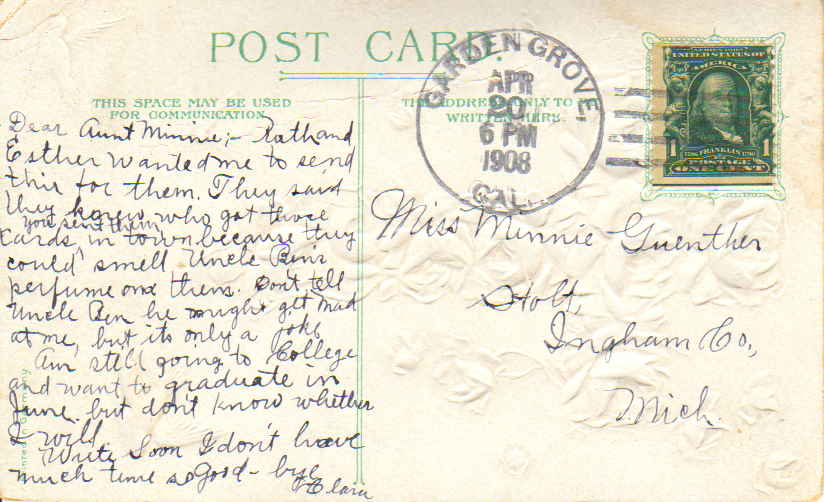 POST CARD.
THIS SPACE MAY BE USED
FOR COMMUNICATION
THE ADDRESS ONLY TO
WRITTEN HERE.
GARDEN GROVE,
APR
20
6 PM
1908
CAL.
UNITED STATES OF
AMERICA
1 FRANKLIN 1
POSTAGE
ONE CENT
Dear Aunt Minnie;- Ruth and
Esther wanted me to send
this for them. They said
they knew who got those
you sent them
cards, in town because they
could smell Uncle Ben's
perfume on them. Don't tell
Uncle Ben he might get mad
at me, but its only a joke.
Am still going to College
and want to graduate in
June but don't know whether
I will.
Write Soon I don't have
much time so Good-bye
Clara
Miss Minnie Guenther
Holt,
Ingham Co.,
Mich.
Printed in Germany